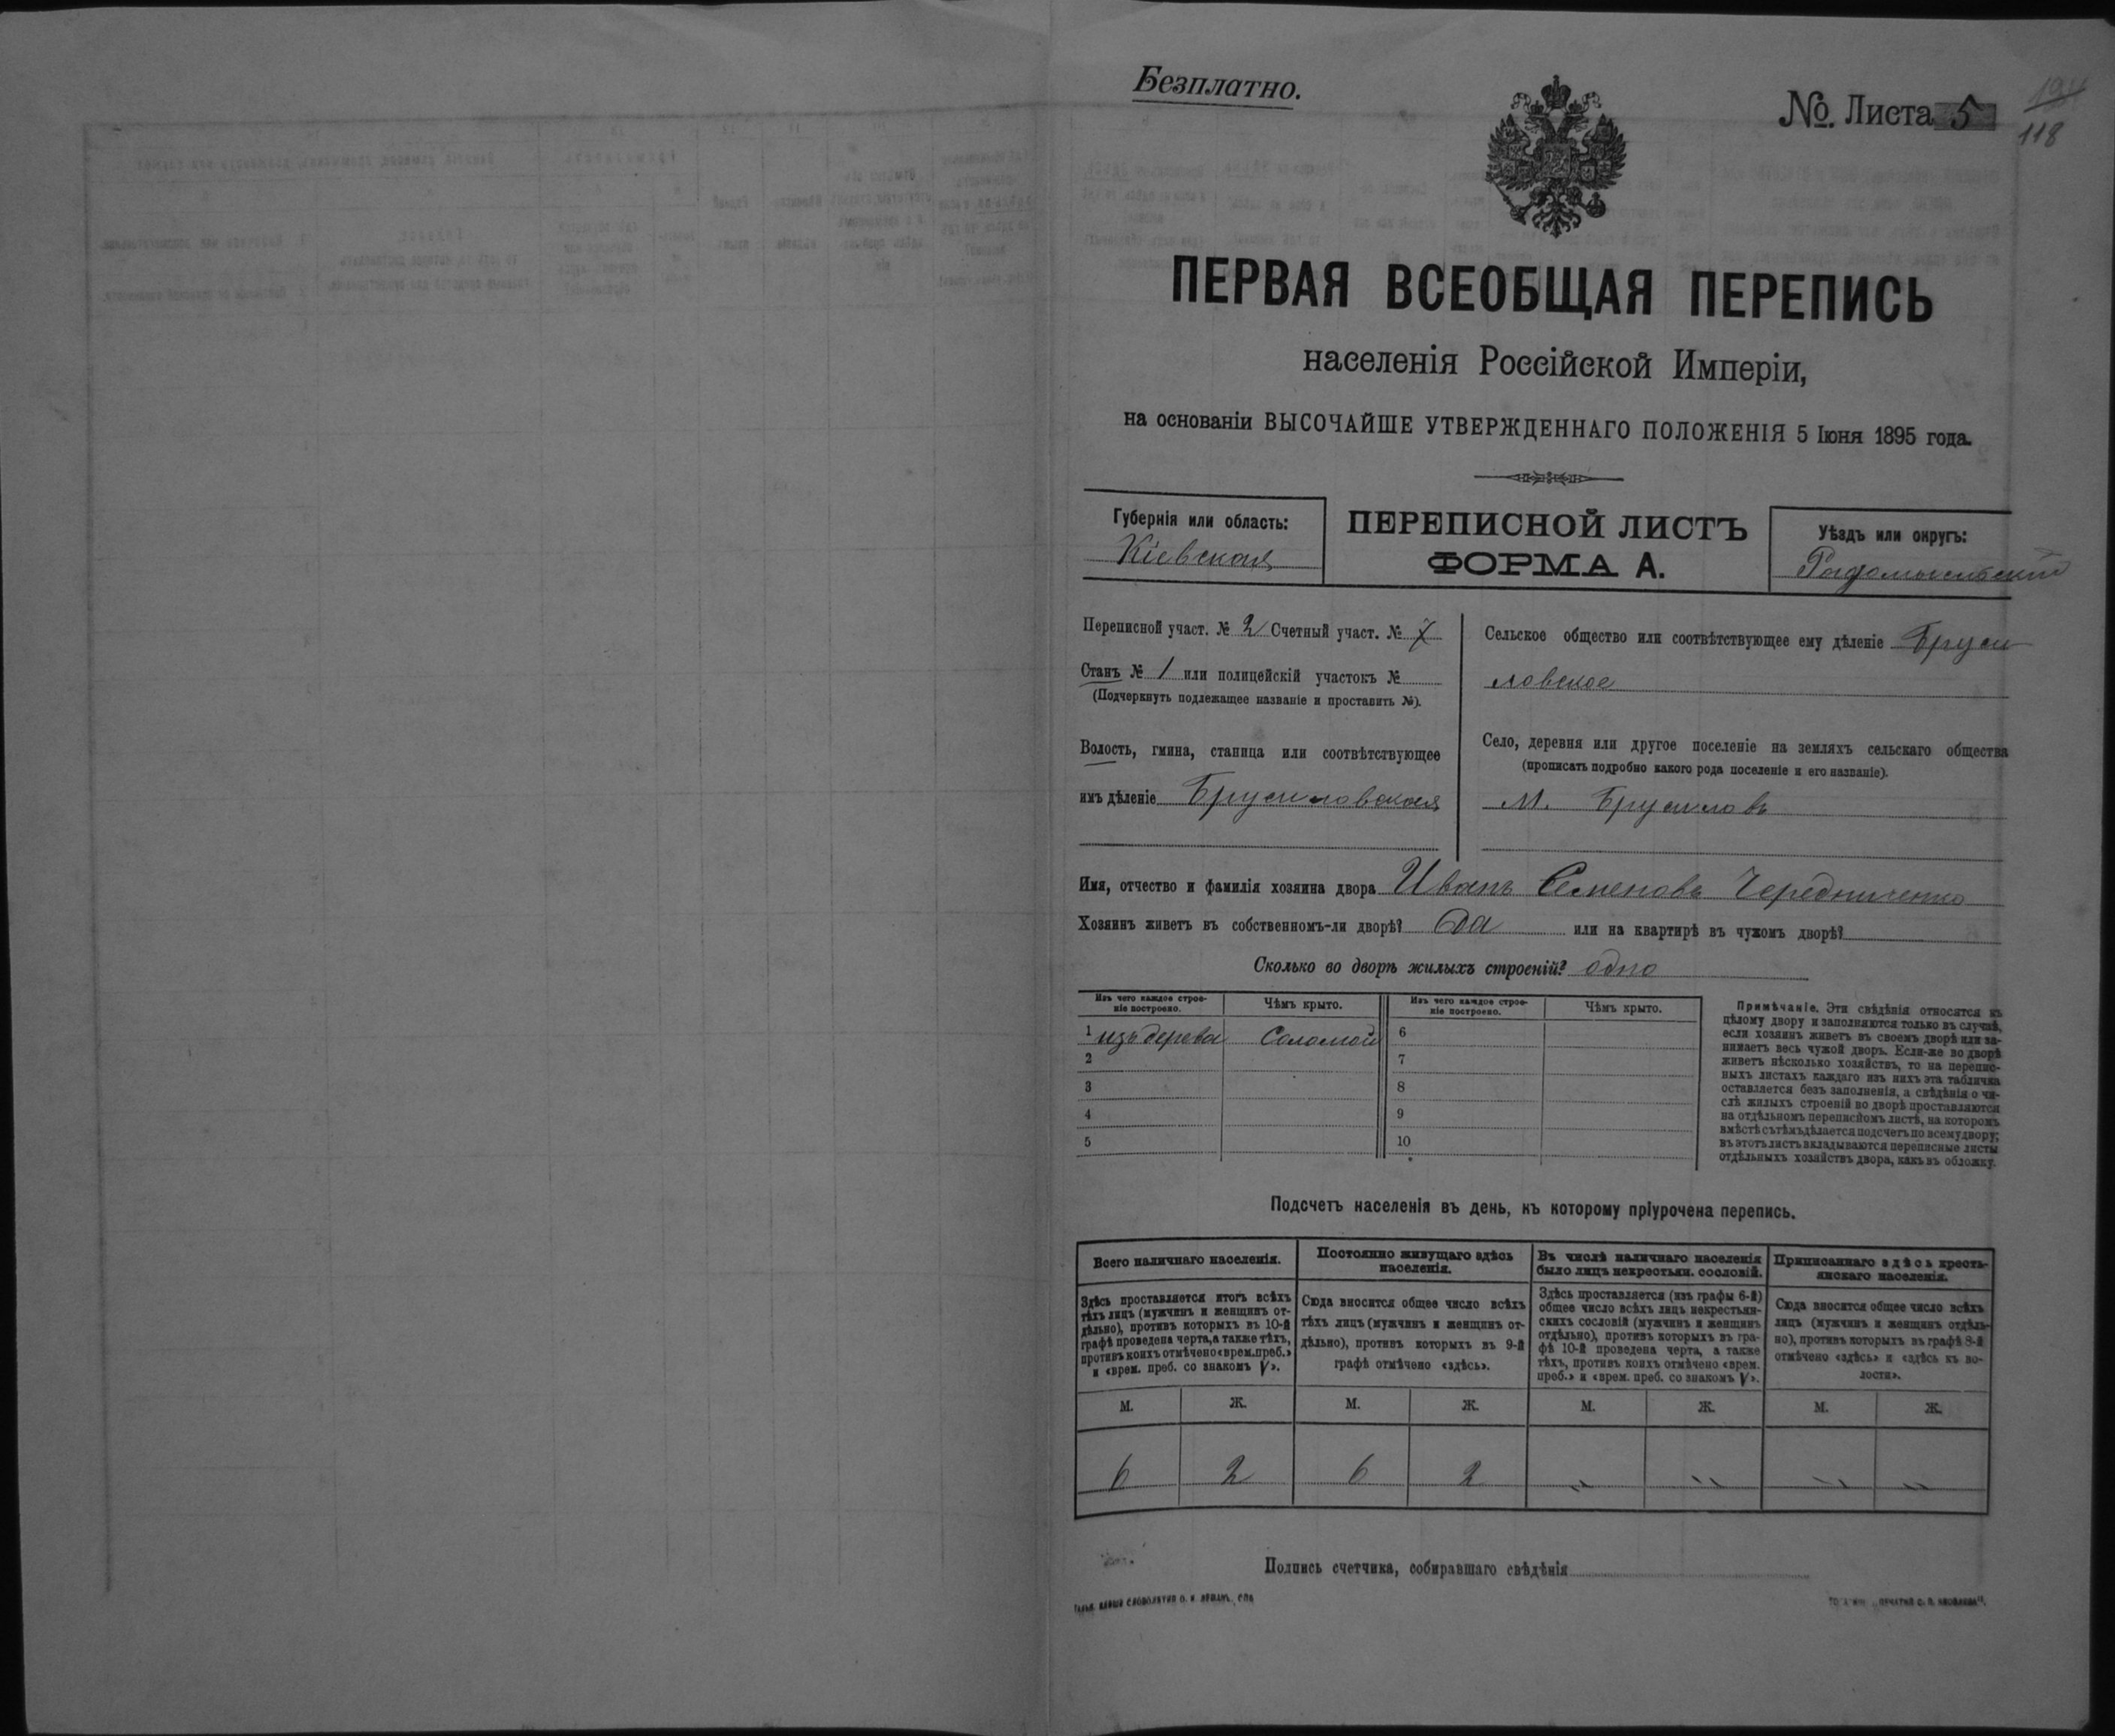 Безплатно.
№. Листа 5
118
ПЕРВАЯ ВСЕОБЩАЯ ПЕРЕПИСЬ
населенія Россійской Имперіи,
на основаніи ВЫСОЧАЙШЕ УТВЕРЖДЕННАГО ПОЛОЖЕНІЯ 5 Іюня 1895 года.
Губернія или область:
Кіевская
ПЕРЕПИСНОЙ ЛИСТЪ
ФОРМА А.
Уѣздъ или округъ:
Радомысльскій
Переписной участ. № 2 Счетный участ. № 7
Станъ № 1 или полицейскій участокъ №
(Подчеркнуть подлежащее названіе и проставить №).
Волость, гмина, станица или соотвѣтствующее
имъ дѣленіе Брусиловская
Сельское общество или соотвѣтствующее ему дѣленіе Бруси
ловское
Село, деревня или другое поселеніе на земляхъ сельскаго общества
(прописать подробно какого рода поселеніе и его названіе).
М. Брусиловъ
Имя, отчество и фамилія хозяина двора Иванъ Семеновъ Чередниченко
Хозяинъ живетъ въ собственномъ-ли дворѣ? Да или на квартирѣ въ чужомъ дворѣ?
Сколько во дворѣ жилыхъ строеній? одно
Изъ чего каждое строе-
ніе построено.
Чѣмъ крыто.
Изъ чего каждое строе-
ніе построено.
Чѣмъ крыто.
1 изъ дерева Соломой 6
2 7
3 8
4 9
5 10
Примѣчаніе. Эти свѣдѣнія относятся къ
цѣлому двору и заполняются только въ случаѣ,
если хозяинъ живетъ въ своемъ дворѣ или за-
нимаетъ весь чужой дворъ. Если-же во дворѣ
живетъ нѣсколько хозяйствъ, то на перепис-
ныхъ листахъ каждаго изъ нихъ эта табличка
оставляется безъ заполненія, а свѣдѣнія о чи-
слѣ жилыхъ строеній во дворѣ проставляются
на отдѣльномъ переписномъ листѣ, на которомъ
вмѣстѣ съ тѣмъ дѣлается подсчетъ по всему двору;
въ этотъ листъ вкладываются переписные листы
отдѣльныхъ хозяйствъ двора, какъ въ обложку.
Подсчетъ населенія въ день, къ которому пріурочена перепись.
Всего наличнаго населенія.
Постоянно живущаго здѣсь
населенія.
Въ числѣ наличнаго населенія
было лицъ некрестьян. сословій.
Приписаннаго здѣсь кресть-
янскаго населенія.
Здѣсь проставляется итогъ всѣхъ
тѣхъ лицъ (мужчинъ и женщинъ от-
дѣльно), противъ которыхъ въ 10-й
графѣ проведена черта, а также тѣхъ,
противъ коихъ отмѣчено «врем. преб.»
и «врем. преб. со знакомъ V».
Сюда вносится общее число всѣхъ
тѣхъ лицъ (мужчинъ и женщинъ от-
дѣльно), противъ которыхъ въ 9-й
графѣ отмѣчено «здѣсь».
Здѣсь проставляется (изъ графы 6-й)
общее число всѣхъ лицъ некрестьян-
скихъ сословій (мужчинъ и женщинъ
отдѣльно), противъ которыхъ въ гра-
фѣ 10-й проведена черта, а также
тѣхъ, противъ коихъ отмѣчено «врем.
преб.» и «врем. преб. со знакомъ V».
Сюда вносится общее число всѣхъ
лицъ (мужчинъ и женщинъ отдѣль-
но), противъ которыхъ въ графѣ 8-й
отмѣчено «здѣсь» и «здѣсь къ во-
лости».
М. Ж. М. Ж. М. Ж. М. Ж.
6 2 6 2 „ „ „ „
Подпись счетчика, собиравшаго свѣдѣнія